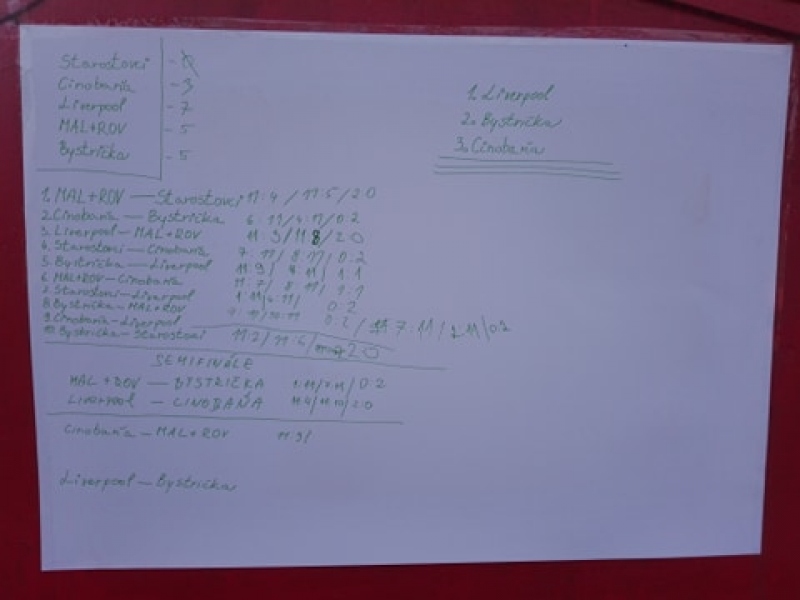 Starostovci - 0
Cinobaňa - 3
Liverpool - 7
MAL+ROV - 5
Bystrička - 5
1. Liverpool
2. Bystrička
3. Cinobaňa
1. MAL+ROV — Starostovci 11:4 / 11:5 / 2:0
2. Cinobaňa — Bystrička 6:11 / 4:11 / 0:2
3. Liverpool — MAL+ROV 11:9 / 11:8 / 2:0
4. Starostovci — Cinobaňa 7:11 / 8:11 / 0:2
5. Bystrička — Liverpool 11:9 / 7:11 / 1:1
6. MAL+ROV — Cinobaňa 11:7 / 8:11 / 1:1
7. Starostovci — Liverpool 1:11 / 4:11 / 0:2
8. Bystrička — MAL+ROV 9:11 / 10:11 0:2
9. Cinobaňa — Liverpool 7:11 / 2:11 / 0:2
10. Bystrička — Starostovci 11:2 / 11:6 / 2:0
SEMIFINÁLE
MAL+ROV — BYSTRIČKA 0:2
LIVERPOOL — CINOBAŇA 11:4 / 11:10 / 2:0
Cinobaňa — MAL+ROV 11:9 /
Liverpool — Bystrička